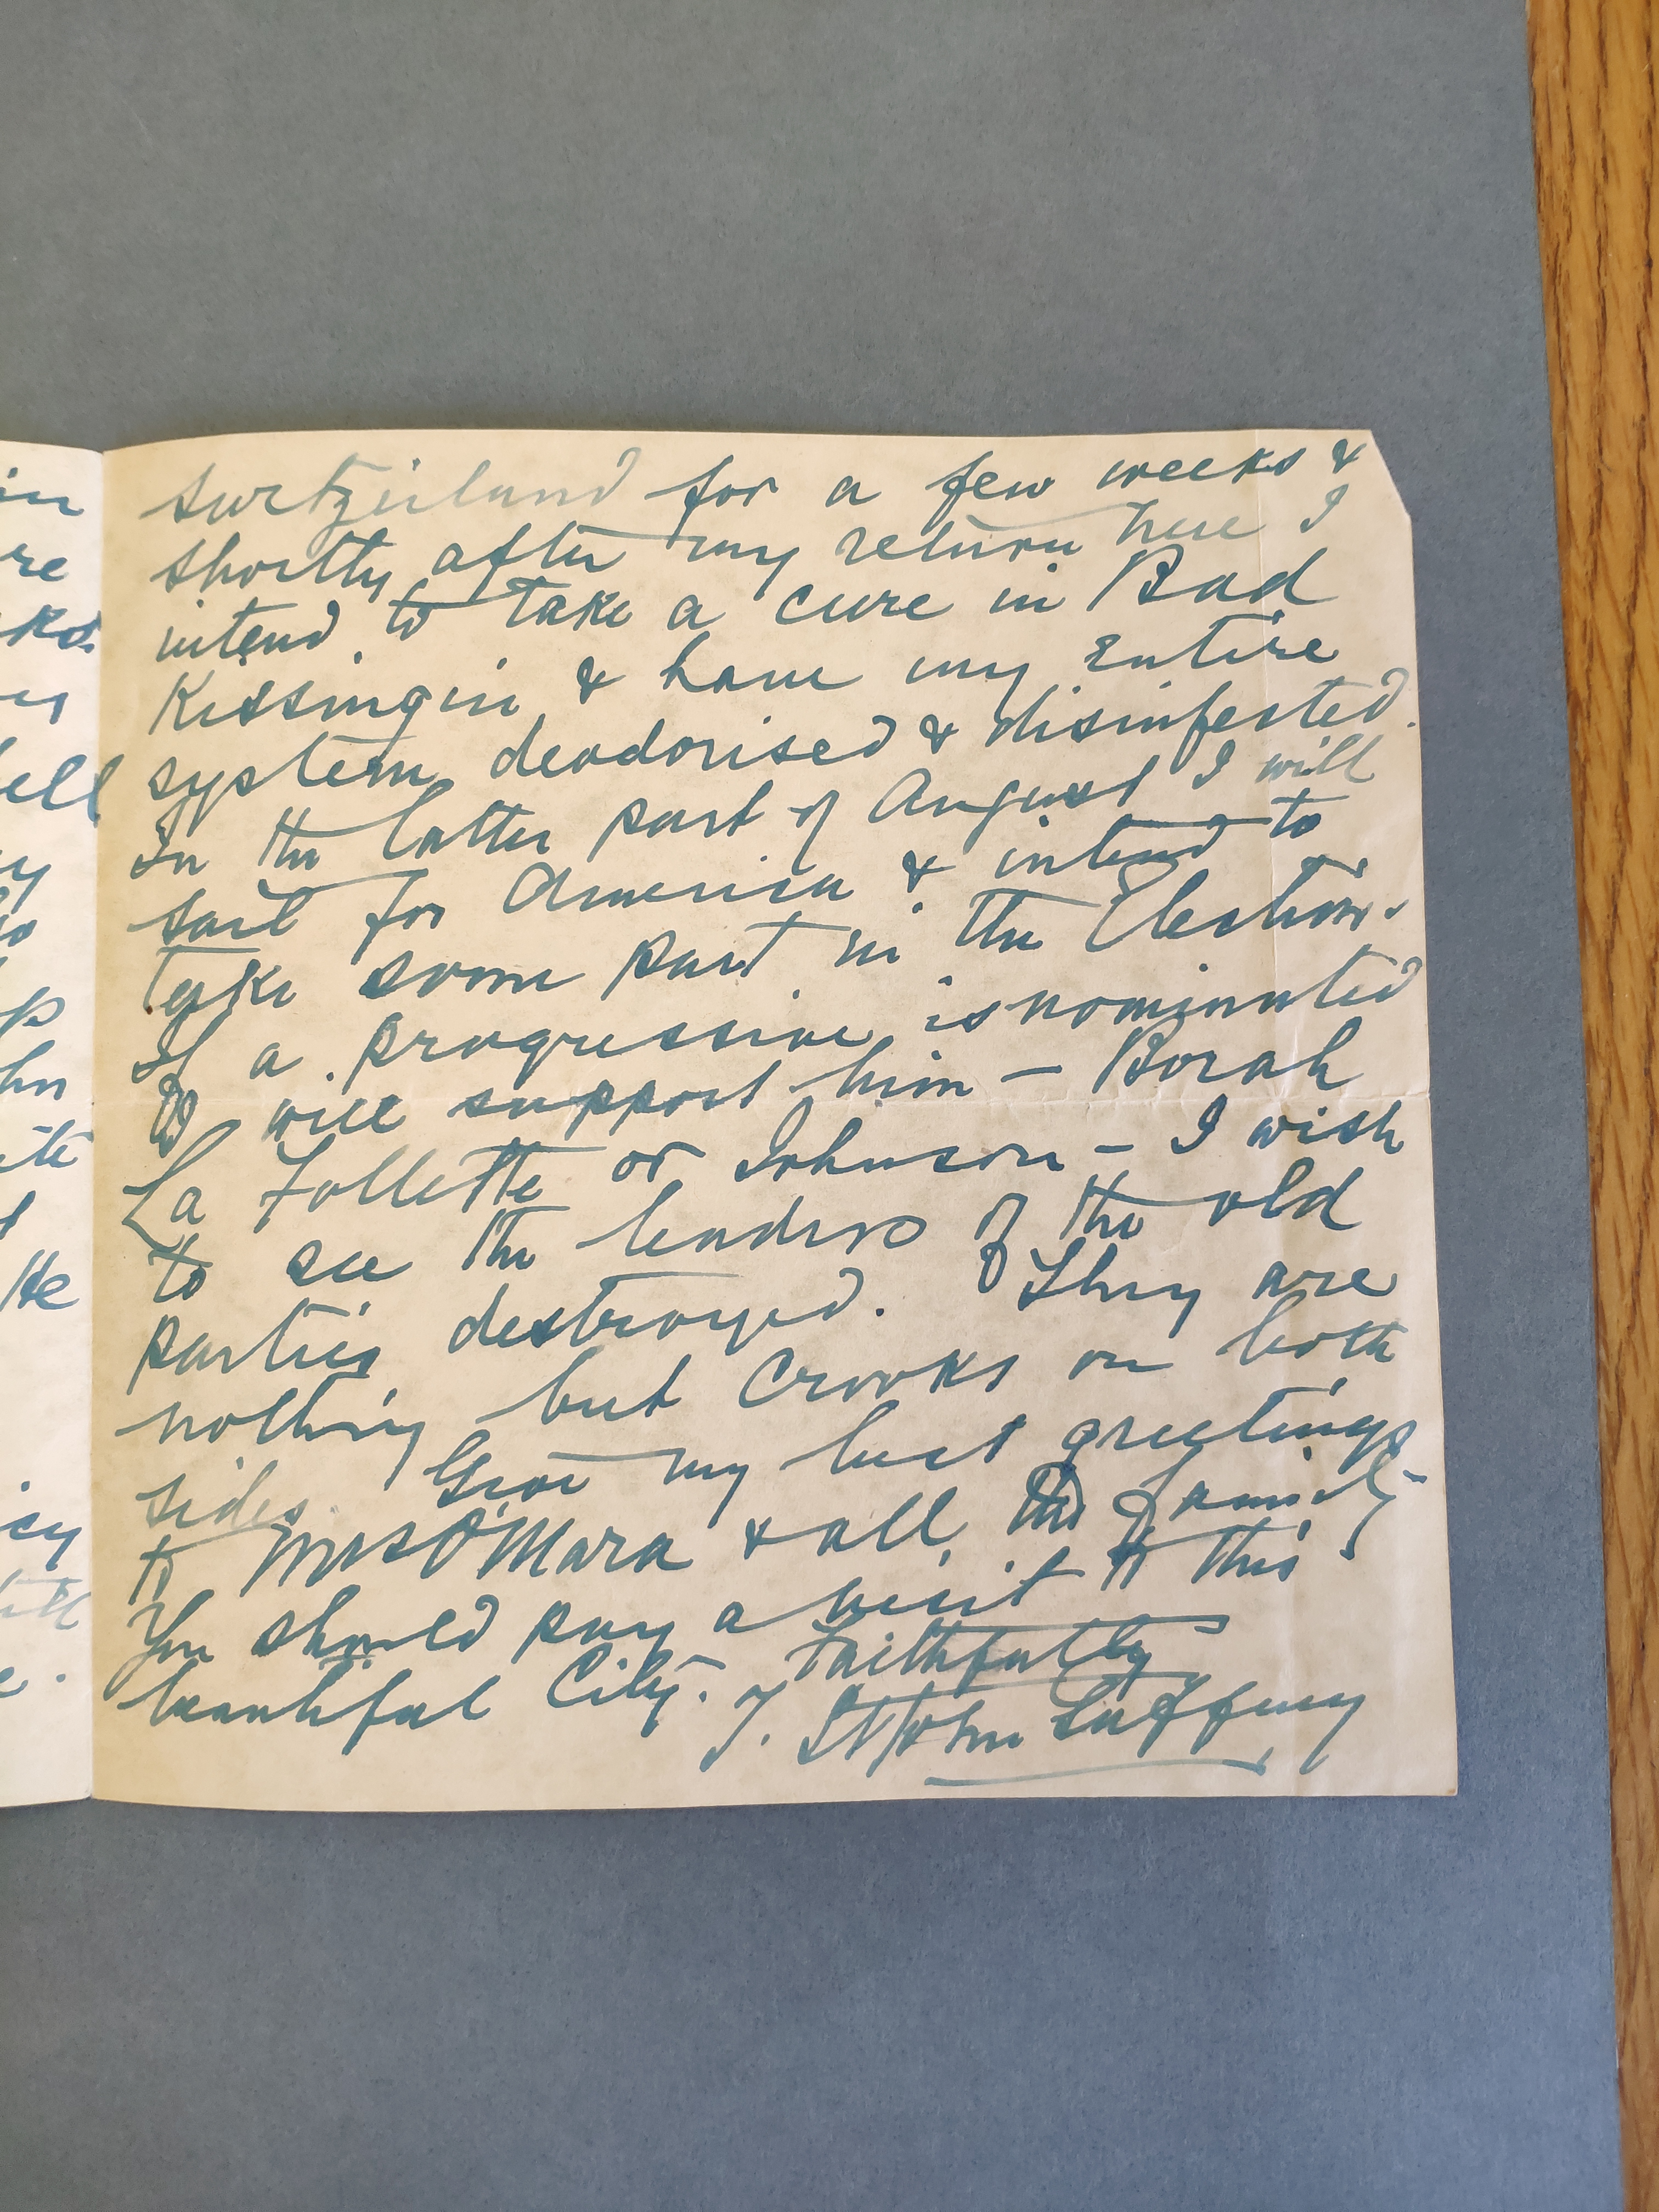 in
re
ks.
ell
y
p
hn
ite
He
icy
till
Switzerland for a few weeks &
shortly after my return here I
intend to take a cure in Bad
Kissingin & have my entire
system deodorised & disinfected.
In the latter part of August I will
sail for America & intend to
take some part in the Elections.
If a progressive is nominated
I will support him – Borah
La Follette or Johnson – I wish
to see the leaders of the old
parties destroyed. They are
nothing but Crooks on both
sides. Give my best greetings
to Mrs O'Mara & all the family –
You should pay a visit to this
beautiful City. Faithfully
T. St John Gaffney